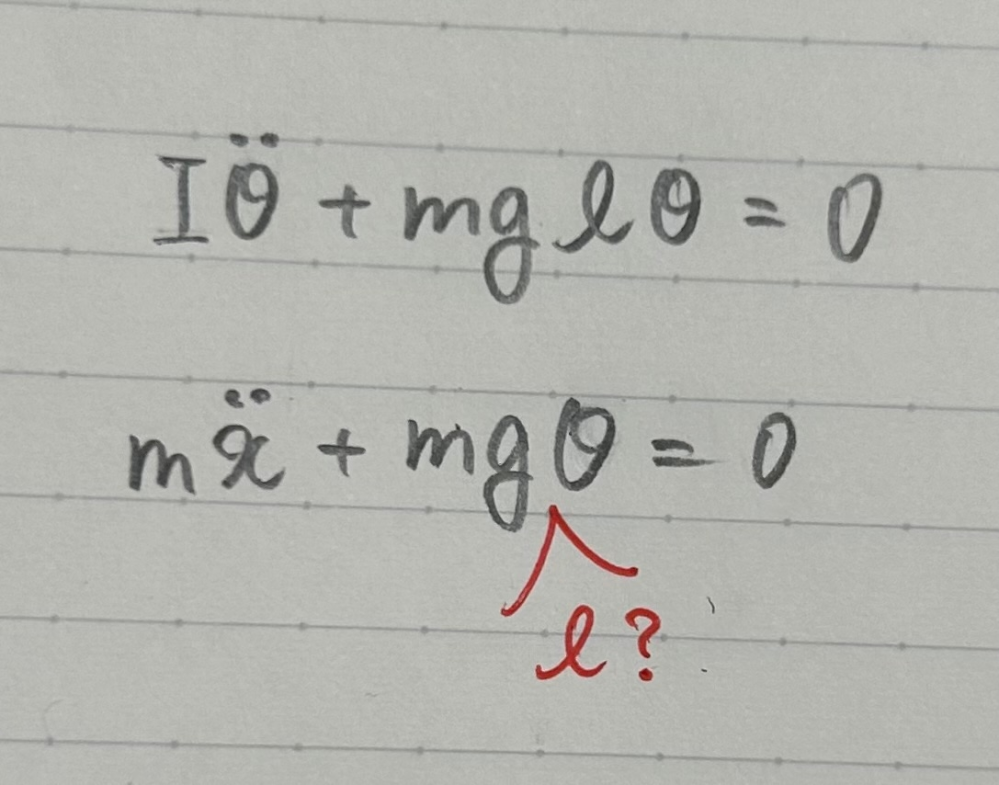 Iθ̈ + mglθ = 0
mẍ + mgθ = 0
l?